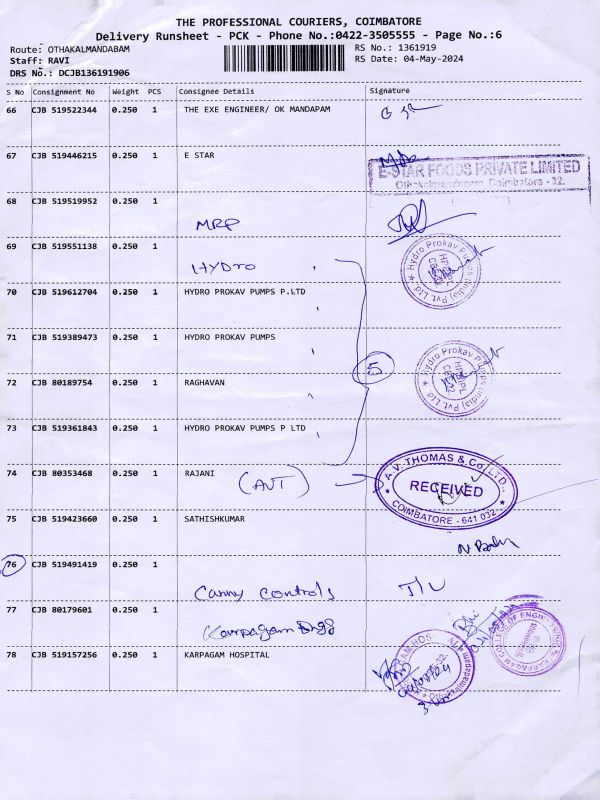 THE PROFESSIONAL COURIERS, COIMBATORE
Delivery Runsheet - PCK - Phone No.:0422-3505555 - Page No.:6
Route: OTHAKALMANDABAM
RS No.: 1361919
Staff: RAVI
RS Date: 04-May-2024
DRS No.: DCJB136191906
S No Consignment No Weight PCS Consignee Details Signature
66 CJB 519522344 0.250 1 THE EXE ENGINEER/ OK MANDAPAM
67 CJB 519446215 0.250 1 E STAR
E-STAR FOODS PRIVATE LIMITED
Othakalmandapam, Coimbatore - 32.
68 CJB 519519952 0.250 1
MRP
69 CJB 519551138 0.250 1
Hydro
Hydro Prokav Pumps (India) Pvt. Ltd
70 CJB 519612704 0.250 1 HYDRO PROKAV PUMPS P.LTD
71 CJB 519389473 0.250 1 HYDRO PROKAV PUMPS
5
Hydro Prokav Pumps (India) Pvt. Ltd
72 CJB 80189754 0.250 1 RAGHAVAN
73 CJB 519361843 0.250 1 HYDRO PROKAV PUMPS P LTD
74 CJB 80353468 0.250 1 RAJANI
(AVT)
A.V. THOMAS & Co. LTD.,
RECEIVED
COIMBATORE - 641 032
75 CJB 519423660 0.250 1 SATHISHKUMAR
76 CJB 519491419 0.250 1
Canny Controls
77 CJB 80179601 0.250 1
Karpagam Engg
KARPAGAM COLLEGE OF ENGINEERING
78 CJB 519157256 0.250 1 KARPAGAM HOSPITAL